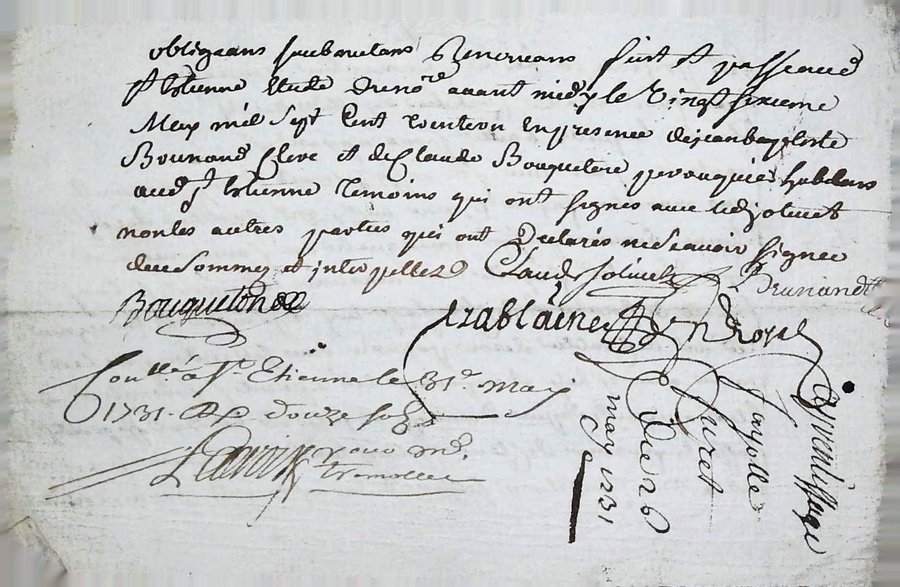 obligeans soubmetans Renonceans fait et passé aud
st Etienne Etude du no.re avant midy le Vingt sixieme
May mil sept Cent trente un En presence de jean baptiste
Brunand Clerc et de Claude perouquier habitans
aud st Etienne temoins qui ont signés avec led jolivet
non les autres parties qui ont Declarés ne scavoir signer
de ce sommes et interpellées Claude jolivet Brunand
Crablaine Royal
Conllé à St Etienne le 31e May
1731. Rx douze sols
pour mr.
tremollet
De 26
may 1731
furet
fayolle
apprentissage